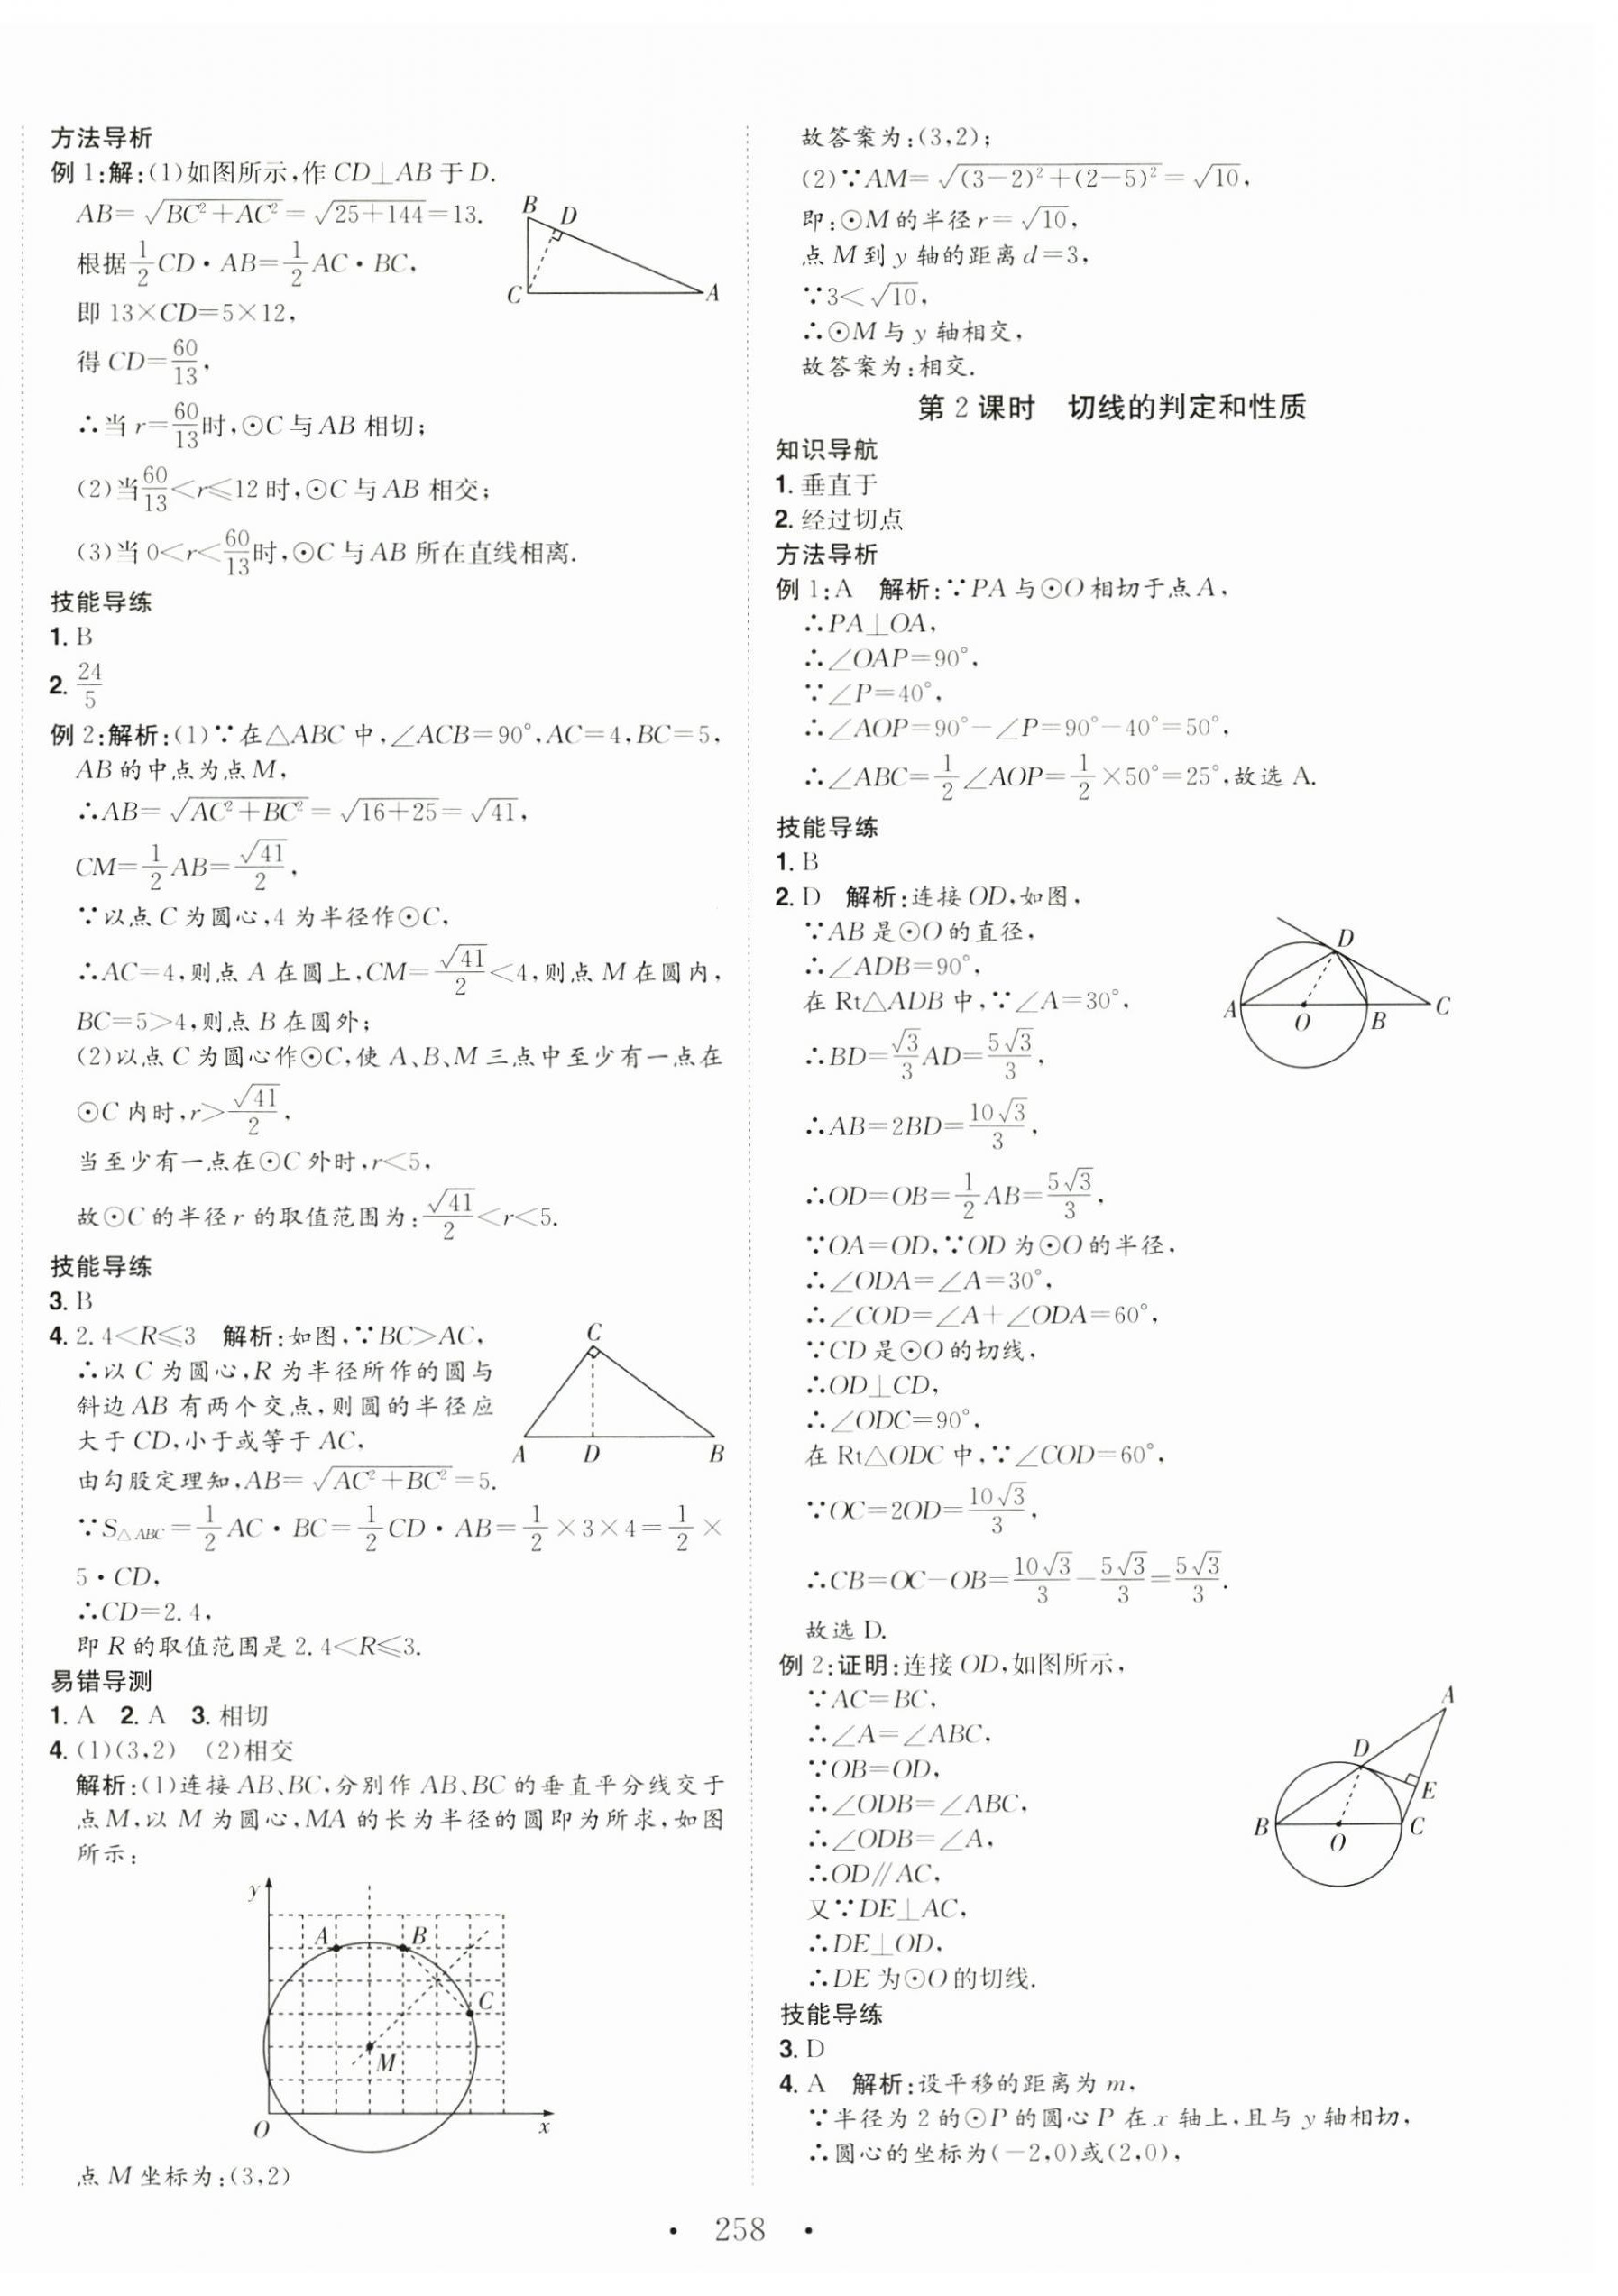 方法导析
例 1:解:(1)如图所示,作 CD⊥AB 于 D.
AB=√(BC²+AC²)=√(25+144)=13.
根据1/2 CD·AB=1/2 AC·BC,
即 13×CD=5×12,
得 CD=60/13,
∴当 r=60/13时,⊙C 与 AB 相切;
(2)当60/13<r≤12 时,⊙C 与 AB 相交;
(3)当 0<r<60/13时,⊙C 与 AB 所在直线相离.
B
D
C
A
技能导练
1. B
2. 24/5
例 2:解析:(1)∵在△ABC 中,∠ACB=90°,AC=4,BC=5,
AB 的中点为点 M,
∴AB=√(AC²+BC²)=√(16+25)=√41,
CM=1/2 AB=√41/2,
∵以点 C 为圆心,4 为半径作⊙C,
∴AC=4,则点 A 在圆上,CM=√41/2<4,则点 M 在圆内,
BC=5>4,则点 B 在圆外;
(2)以点 C 为圆心作⊙C,使 A、B、M 三点中至少有一点在
⊙C 内时,r>√41/2,
当至少有一点在⊙C 外时,r<5,
故⊙C 的半径 r 的取值范围为:√41/2<r<5.
技能导练
3. B
4. 2.4<R≤3 解析:如图,∵BC>AC,
∴以 C 为圆心,R 为半径所作的圆与
斜边 AB 有两个交点,则圆的半径应
大于 CD,小于或等于 AC,
由勾股定理知,AB=√(AC²+BC²)=5.
C
A
D
B
∵S△ABC=1/2 AC·BC=1/2 CD·AB=1/2×3×4=1/2×
5·CD,
∴CD=2.4,
即 R 的取值范围是 2.4<R≤3.
易错导测
1. A 2. A 3. 相切
4. (1)(3,2) (2)相交
解析:(1)连接 AB、BC,分别作 AB、BC 的垂直平分线交于
点 M,以 M 为圆心,MA 的长为半径的圆即为所求,如图
所示:
y
A
B
C
M
O
x
点 M 坐标为:(3,2)
故答案为:(3,2);
(2)∵AM=√((3-2)²+(2-5)²)=√10,
即:⊙M 的半径 r=√10,
点 M 到 y 轴的距离 d=3,
∵3<√10,
∴⊙M 与 y 轴相交,
故答案为:相交.
第 2 课时 切线的判定和性质
知识导航
1. 垂直于
2. 经过切点
方法导析
例 1:A 解析:∵PA 与⊙O 相切于点 A,
∴PA⊥OA,
∴∠OAP=90°,
∵∠P=40°,
∴∠AOP=90°-∠P=90°-40°=50°,
∴∠ABC=1/2∠AOP=1/2×50°=25°,故选 A.
技能导练
1. B
2. D 解析:连接 OD,如图,
∵AB 是⊙O 的直径,
∴∠ADB=90°,
在 Rt△ADB 中,∵∠A=30°,
∴BD=√3/3 AD=5√3/3,
∴AB=2BD=10√3/3,
∴OD=OB=1/2 AB=5√3/3,
∵OA=OD,∵OD 为⊙O 的半径,
∴∠ODA=∠A=30°,
∴∠COD=∠A+∠ODA=60°,
∵CD 是⊙O 的切线,
∴OD⊥CD,
∴∠ODC=90°,
在 Rt△ODC 中,∵∠COD=60°,
∵OC=2OD=10√3/3,
∴CB=OC-OB=10√3/3-5√3/3=5√3/3.
故选 D.
D
A
O
B
C
例 2:证明:连接 OD,如图所示,
∵AC=BC,
∴∠A=∠ABC,
∵OB=OD,
∴∠ODB=∠ABC,
∴∠ODB=∠A,
∴OD∥AC,
又∵DE⊥AC,
∴DE⊥OD,
∴DE 为⊙O 的切线.
A
D
E
B
O
C
技能导练
3. D
4. A 解析:设平移的距离为 m,
∵半径为 2 的⊙P 的圆心 P 在 x 轴上,且与 y 轴相切,
∴圆心的坐标为(-2,0)或(2,0),
· 258 ·